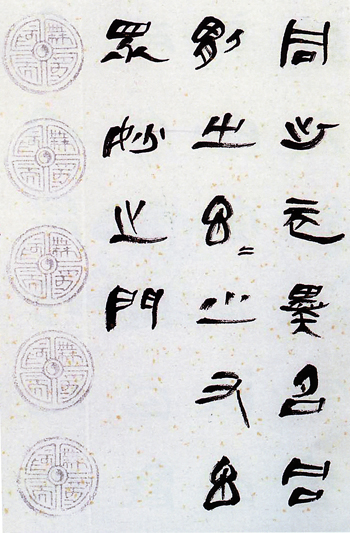 同出而異名同
謂之玄〻之又玄
眾妙之門